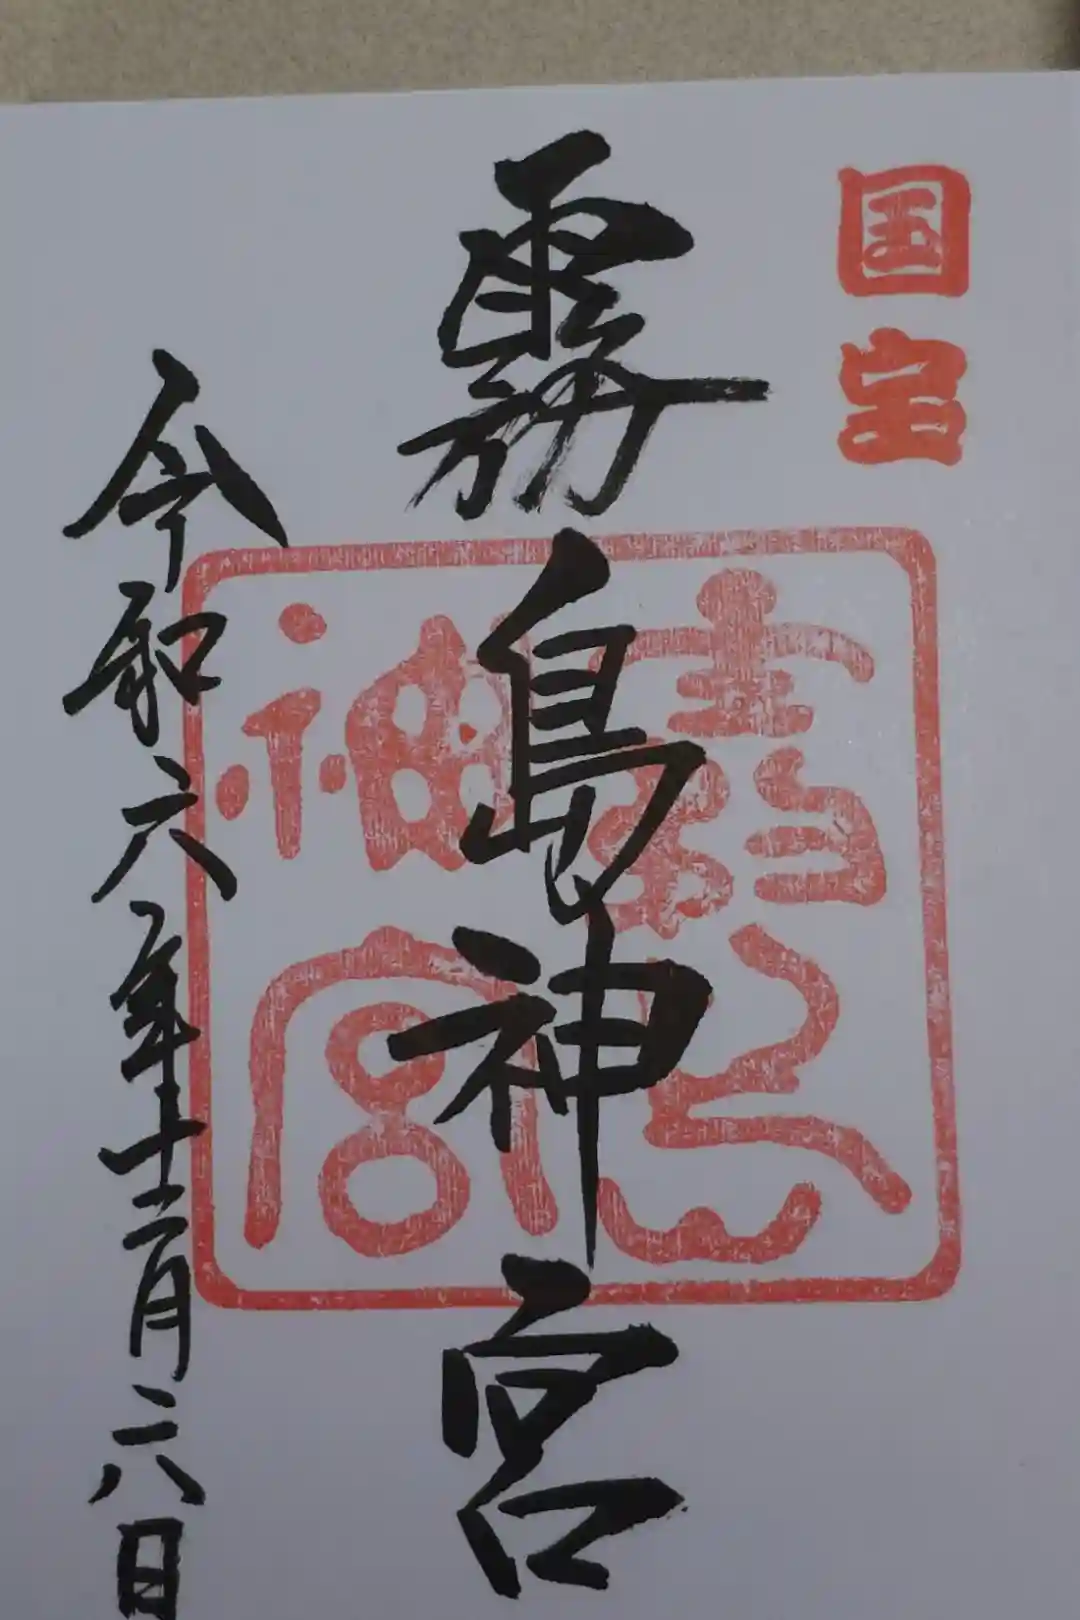 国宝
霧島神宮
霧島
神宮
令和六年十二月二八日